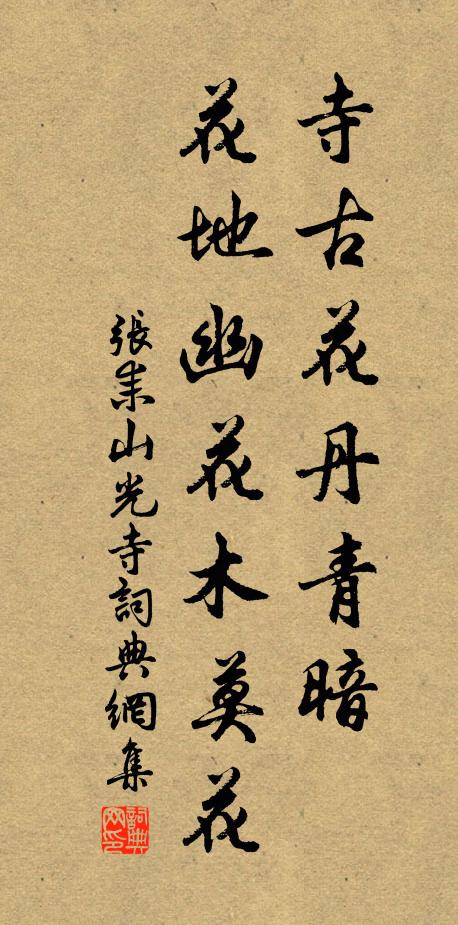 寺古花丹青暗
花地幽花木莫花
張耒山光寺詞典網集
詞典网印